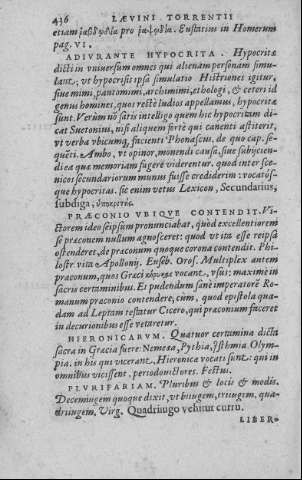 436 LÆVINI TORRENTII
etiam ῥαβδῳδία pro ῥαψῳδία. Eustatius in Homerum
pag. VI.
ADIVRANTE HYPOCRITA. Hypocritæ
dicti in vniuersum omnes qui alienam personam simu-
lant, vt hypocrisis ipsa simulatio Histriones igitur,
siue mimi, pantomimi, archimimi, ethologi, & ceteri id
genus homines, quos rectè ludios appellamus, hypocritæ
sunt. Verùm nō satis intelligo quem hîc hypocritam di-
cat Suetonius, nisi aliquem fortè qui canenti astiterit,
vt verba vbicumq; facienti Phonascus. de quo cap. se-
quēti. Ambo, vt opinor, monendi causa, siue subijcien-
di ea quæ memoriam fugere viderentur. quod inter sce-
nicos secundariorum munus fuisse crediderim: vocatós-
que hypocritas. sic enim vetus Lexicon, Secundarius,
subdiga, ὑποκριτής.
PRÆCONIO VBIQVE CONTENDIT. Vi-
ctorem ideo seipsum pronunciabat, quòd excellentiorem
se præconem nullum agnosceret: quod vt ita esse reipsa
ostenderet, de præconum quoque corona contendit. Phi-
lostr. vita Apollonij. Euseb. Oros. Multiplex autem
præconum, quos Græci κήρυκας vocant, vsus: maximè in
sacris certaminibus. Et pudendum sanè imperatorē Ro-
manum præconio contendere, cùm, quod epistola qua-
dam ad Leptam testatur Cicero, qui præconium faceret
in decurionibus esse vetaretur.
HIERONICARVM. Quatuor certamina dicta
sacra in Græcia fuere: Nemeæa, Pythia, Isthmia Olym-
pia. in his qui vicerant, Hieronicæ vocati sunt: qui in
omnibus vicissent, periodonictores. Festus.
PLVRIFARIAM. Pluribus & locis & modis.
Decemiugem quoque dixit, vt biiugem, triiugem, qua-
driiugem, Virg. Quadriiugo vehitur curru.
LIBER